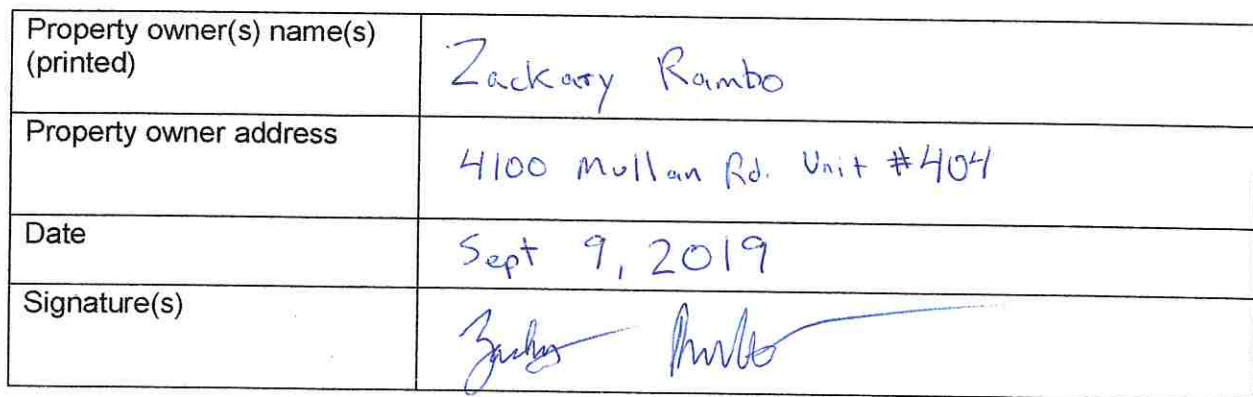 Property owner(s) name(s)
(printed)
Zackary Rambo
Property owner address
4100 Mullan Rd. Unit #404
Date
Sept 9, 2019
Signature(s)